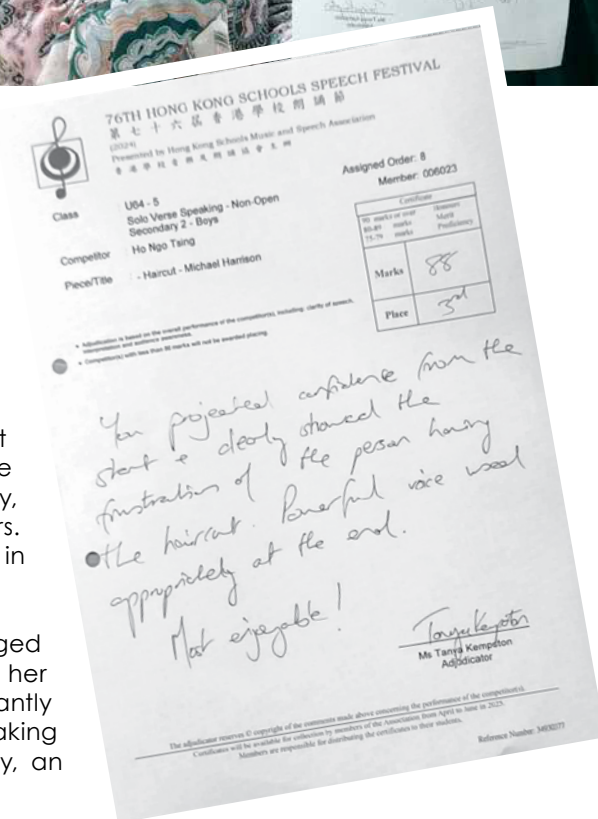 76TH HONG KONG SCHOOLS SPEECH FESTIVAL
第七十六屆香港學校朗誦節
(2024)
Presented by Hong Kong Schools Music and Speech Association
香港學校音樂及朗誦協會主辦
Assigned Order: 8
Member: 006023
Class
U04 - 5
Solo Verse Speaking - Non-Open
Secondary 2 - Boys
Competitor
Ho Ngo Tsing
Piece/Title
- Haircut - Michael Harrison
Certificate
90 marks or over Honours
80-89 marks Merit
75-79 marks Proficiency
Marks 88
Place 3rd
• Adjudication is based on the overall performance of the competitor(s), including: clarity of speech, interpretation and audience awareness.
• Competitor(s) with less than 80 marks will not be awarded placing.
You projected confidence from the
start & clearly showed the
frustration of the person having
the haircut. Powerful voice used
appropriately at the end.
Most enjoyable!
Ms Tanya Kempston
Adjudicator
The adjudicator reserves © copyright of the comments made above concerning the performance of the competitor(s).
Certificates will be available for collection by members of the Association from April to June in 2025.
Members are responsible for distributing the certificates to their students.
Reference Number: 34930373
t
e
y,
rs.
in
ged
her
antly
aking
y, an